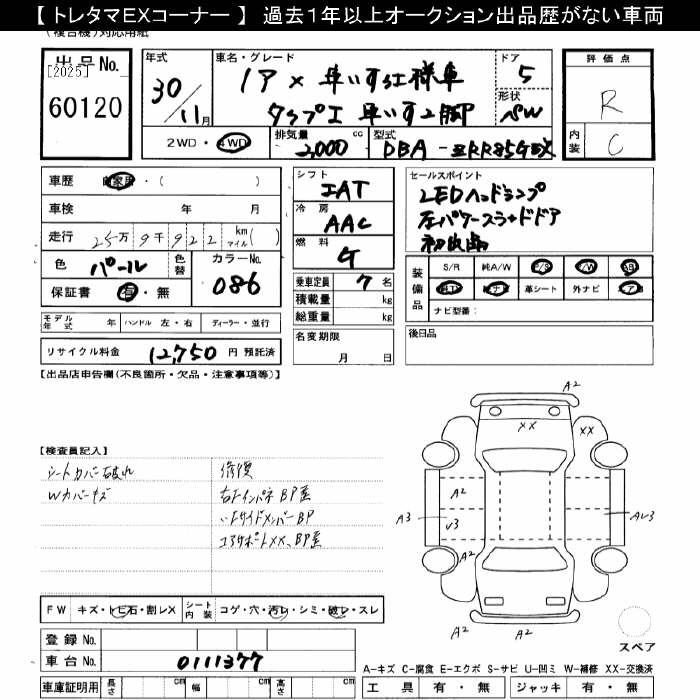 【 トレタマEXコーナー 】 過去1年以上オークション出品歴がない車両
(複合機)対応用紙
出品No.
[2025]
60120
年式
30/11月
車名・グレード
ノア × 車いす仕様車
タップI 車いす2脚
ドア
5
形状
SW
評価点
R
内装
C
2WD・4WD
排気量 2,000 cc
型式 DBA - ZRR85G改
車歴 自家用・( )
車検 年 月
走行 25万9千922 km マイル( )
色 パール 色替
カラーNo. 086
保証書 有・無
シフト
IAT
冷房
AAC
燃料
G
乗車定員 7 名
積載量 kg
総重量 kg
セールスポイント
LEDヘッドランプ
左パワースライドドア
装備品
S/R 純A/W P/S P/W
革シート 外ナビ エアB
ナビ型番:
モデル年式 年 ハンドル 左・右 ディーラー・並行
リサイクル料金 12,750 円 預託済
名変期限
月 日
後日品
【出品店申告欄(不良箇所・欠品・注意事項等)】
【検査員記入】
シートカバー破れ
Wカバーキズ
修復
BP歪
サイドメンバーBP
コアサポートXX、BP歪
A2
XX
XX
A2
V3
A3
AU3
A2
A2
A2
FW キズ・トビ石・割レX
シート内装 コゲ・穴・汚レ・シミ・破レ・スレ
登録No.
車台No. 0111377
車庫証明用 長さ cm 幅 cm 高さ cm
スペア
A-キズ C-腐食 E-エクボ S-サビ U-凹ミ W-補修 XX-交換済
工具 有・無 ジャッキ 有・無